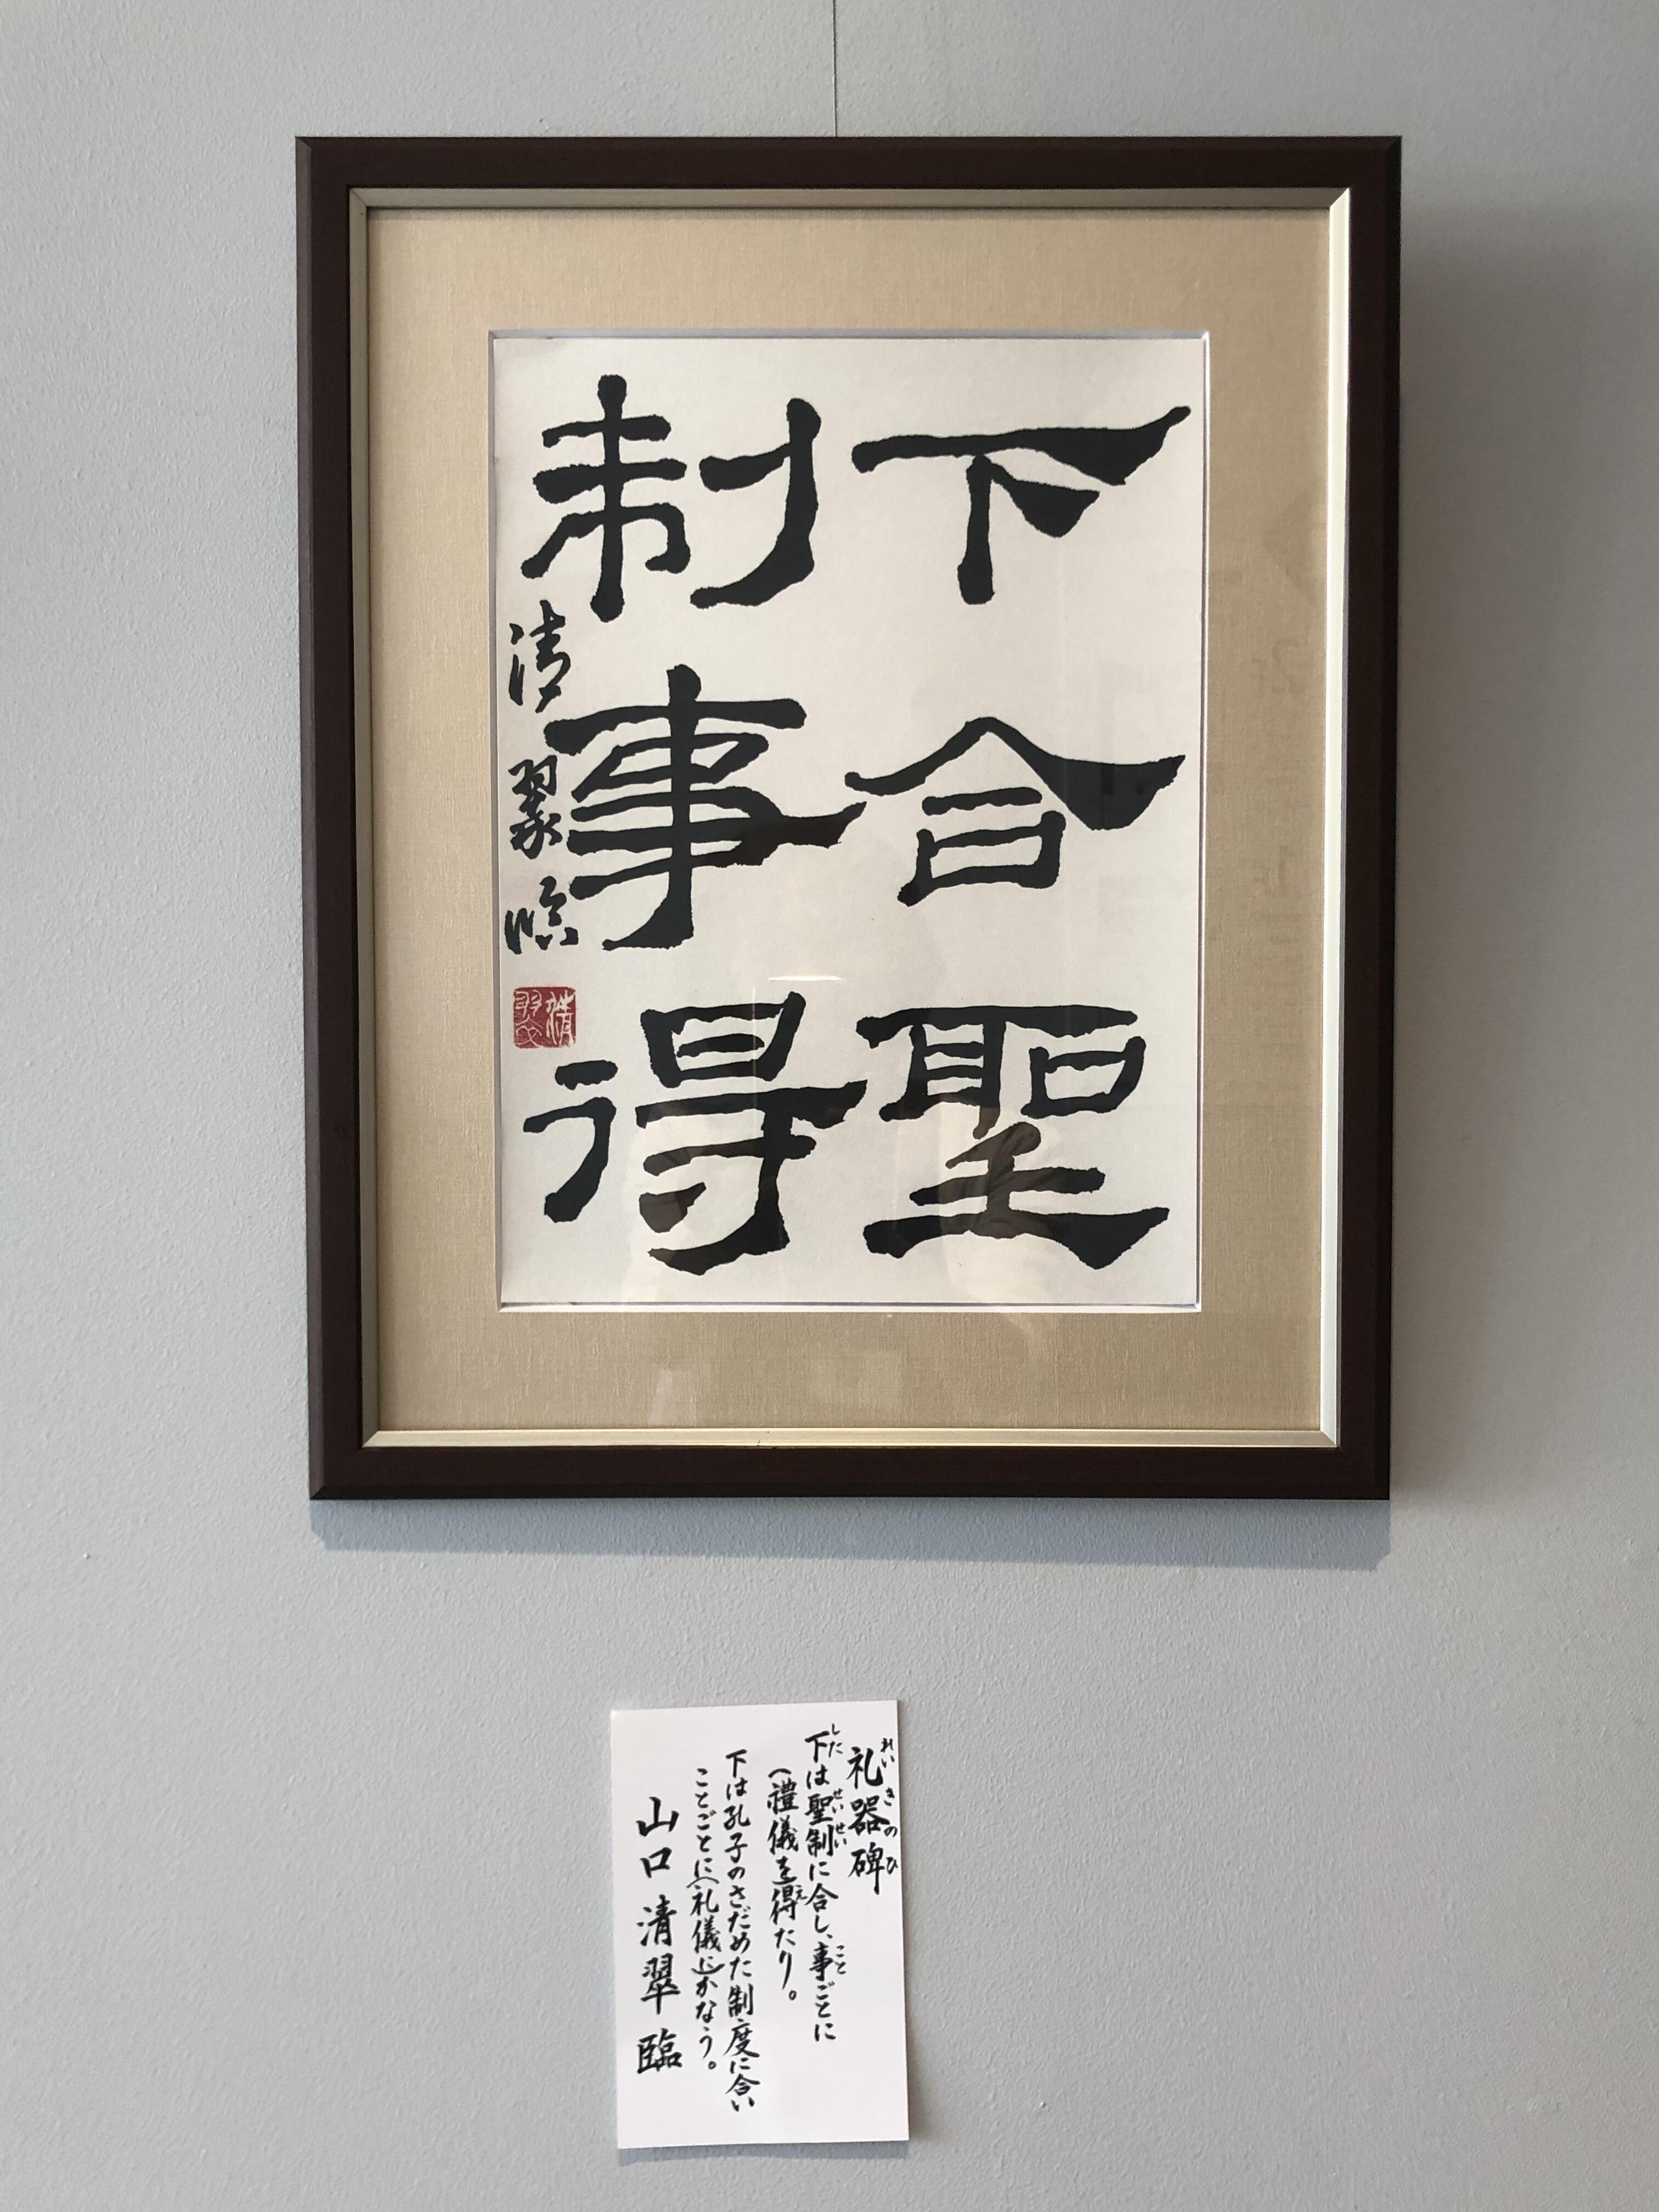 下合聖
制事得
清翠臨
礼器碑
れいきのひ
下は聖制に合し、事ごとに
した せいせい こと
(禮儀を)得たり。
え
下は孔子のさだめた制度に合い
ことごとに(礼儀に)かなう。
山口清翠臨